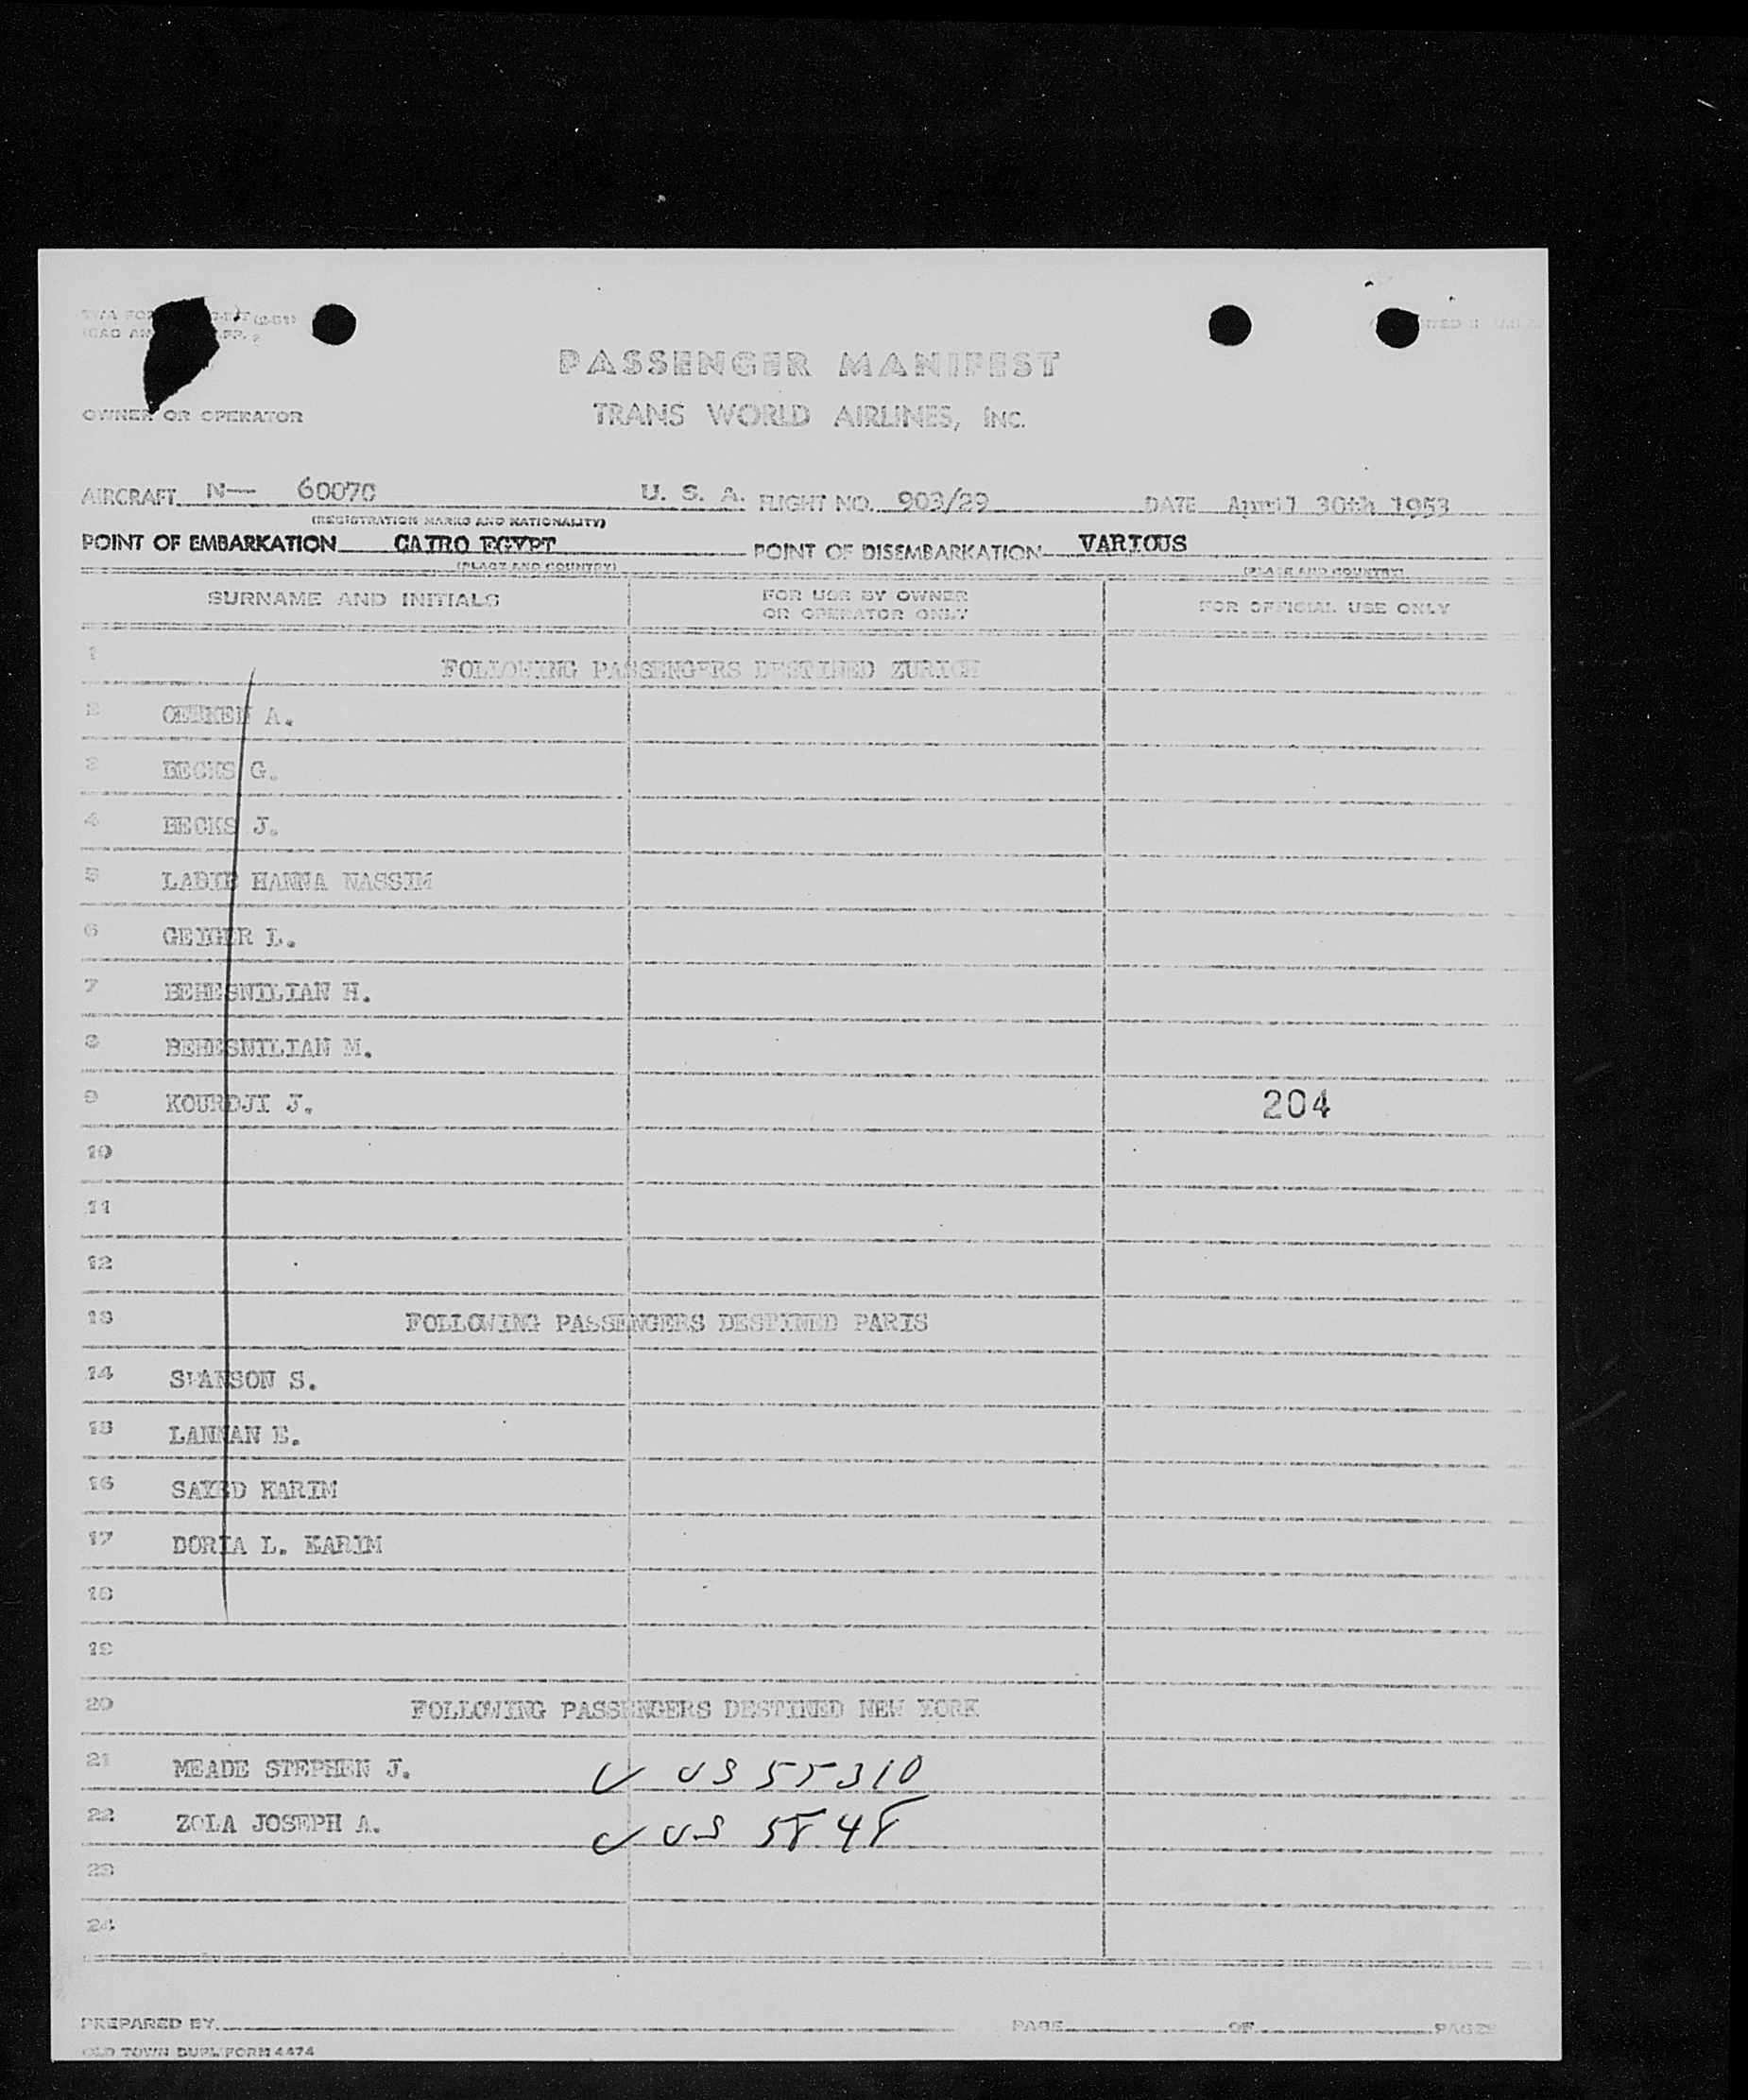 PASSENGER MANIFEST
OWNER OR OPERATOR TRANS WORLD AIRLINES, INC.
AIRCRAFT N— 6007C U. S. A. FLIGHT NO. 903/29 DATE April 30th 1953
(REGISTRATION MARKS AND NATIONALITY)
POINT OF EMBARKATION CAIRO EGYPT POINT OF DISEMBARKATION VARIOUS
(PLACE AND COUNTRY) (PLACE AND COUNTRY)
SURNAME AND INITIALS FOR USE BY OWNER OR OPERATOR ONLY FOR OFFICIAL USE ONLY
1 FOLLOWING PASSENGERS DESTINED ZURICH
2 A.
3 BECKS G.
4 BECKS J.
5 LABIB HANNA NASSIM
6 L.
7 BEHESNILIAN H.
8 BEHESNILIAN M.
9 KOURDJI J. 204
10
11
12
13 FOLLOWING PASSENGERS DESTINED PARIS
14 S.
15 E.
16 SAYED KARIM
17 DORIA L. KARIM
18
19
20 FOLLOWING PASSENGERS DESTINED NEW YORK
21 MEADE STEPHEN J. US 55310
22 ZOLA JOSEPH A. US 5848
23
24
PREPARED BY PAGE OF PAGES
OLD TOWN DUPLIFORM 4474